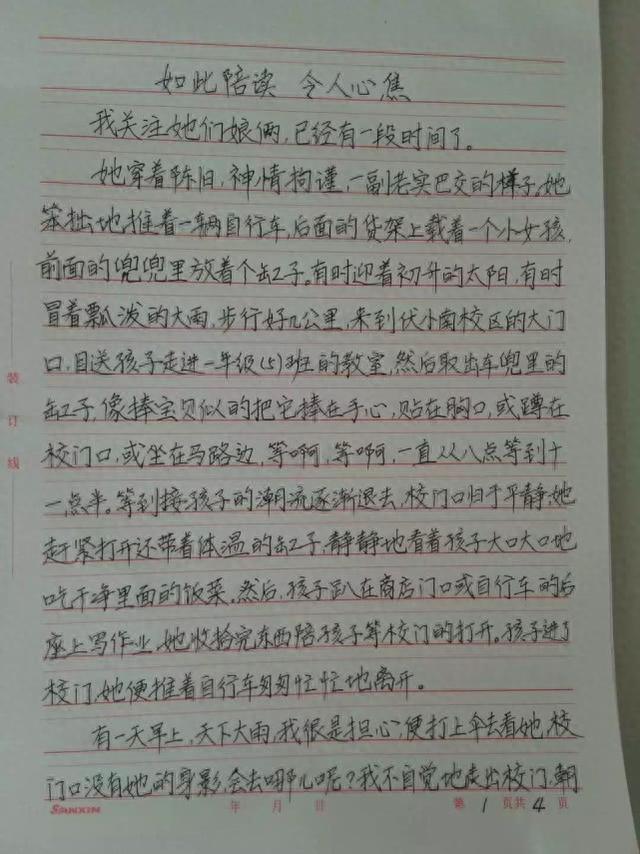 如此陪读 令人心焦
我关注她们娘俩,已经有一段时间了。
她穿着陈旧,神情拘谨,一副老实巴交的样子。她
笨拙地推着一辆自行车,后面的货架上载着一个小女孩,
前面的兜兜里放着个缸子。有时迎着初升的太阳,有时
冒着瓢泼的大雨,步行好几公里,来到伏小南校区的大门
口,目送孩子走进一年级(5)班的教室,然后取出车兜里的
缸子,像捧宝贝似的把它捧在手心,贴在胸口,或蹲在
校门口,或坐在马路边,等啊,等啊,一直从八点等到十
一点半。等到接孩子的潮流逐渐退去,校门口归于平静,她
赶紧打开还带着体温的缸子,静静地看着孩子大口大口地
吃干净里面的饭菜。然后,孩子趴在商店门口或自行车的后
座上写作业,她收拾完东西陪孩子等校门的打开。孩子进了
校门,她便推着自行车匆匆忙忙地离开。
有一天早上,天下大雨,我很是担心,便打上伞去看她,校
门口没有她的身影,会去哪儿呢?我不自觉地走出校门,朝
装订线
SANXIN 年 月 日 第 1 页共 4 页